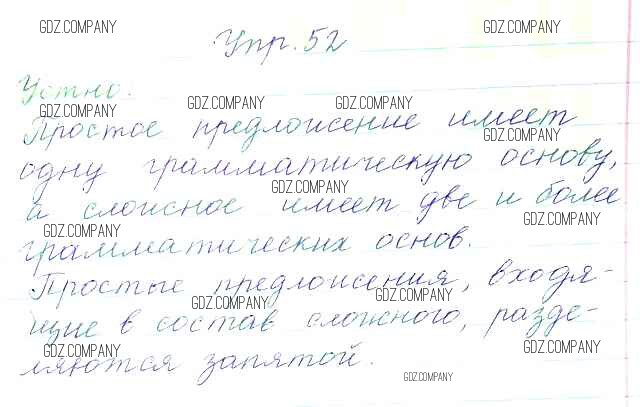 GDZ.COMPANY GDZ.COMPANY
Упр. 52
Устно:
GDZ.COMPANY GDZ.COMPANY GDZ.COMPANY
Простое предложение имеет
GDZ.COMPANY
одну грамматическую основу,
GDZ.COMPANY
а сложное имеет две и более
GDZ.COMPANY GDZ.COMPANY
грамматических основ.
Простые предложения, входя-
GDZ.COMPANY GDZ.COMPANY
щие в состав сложного, разде-
GDZ.COMPANY GDZ.COMPANY
ляются запятой.
GDZ.COMPANY